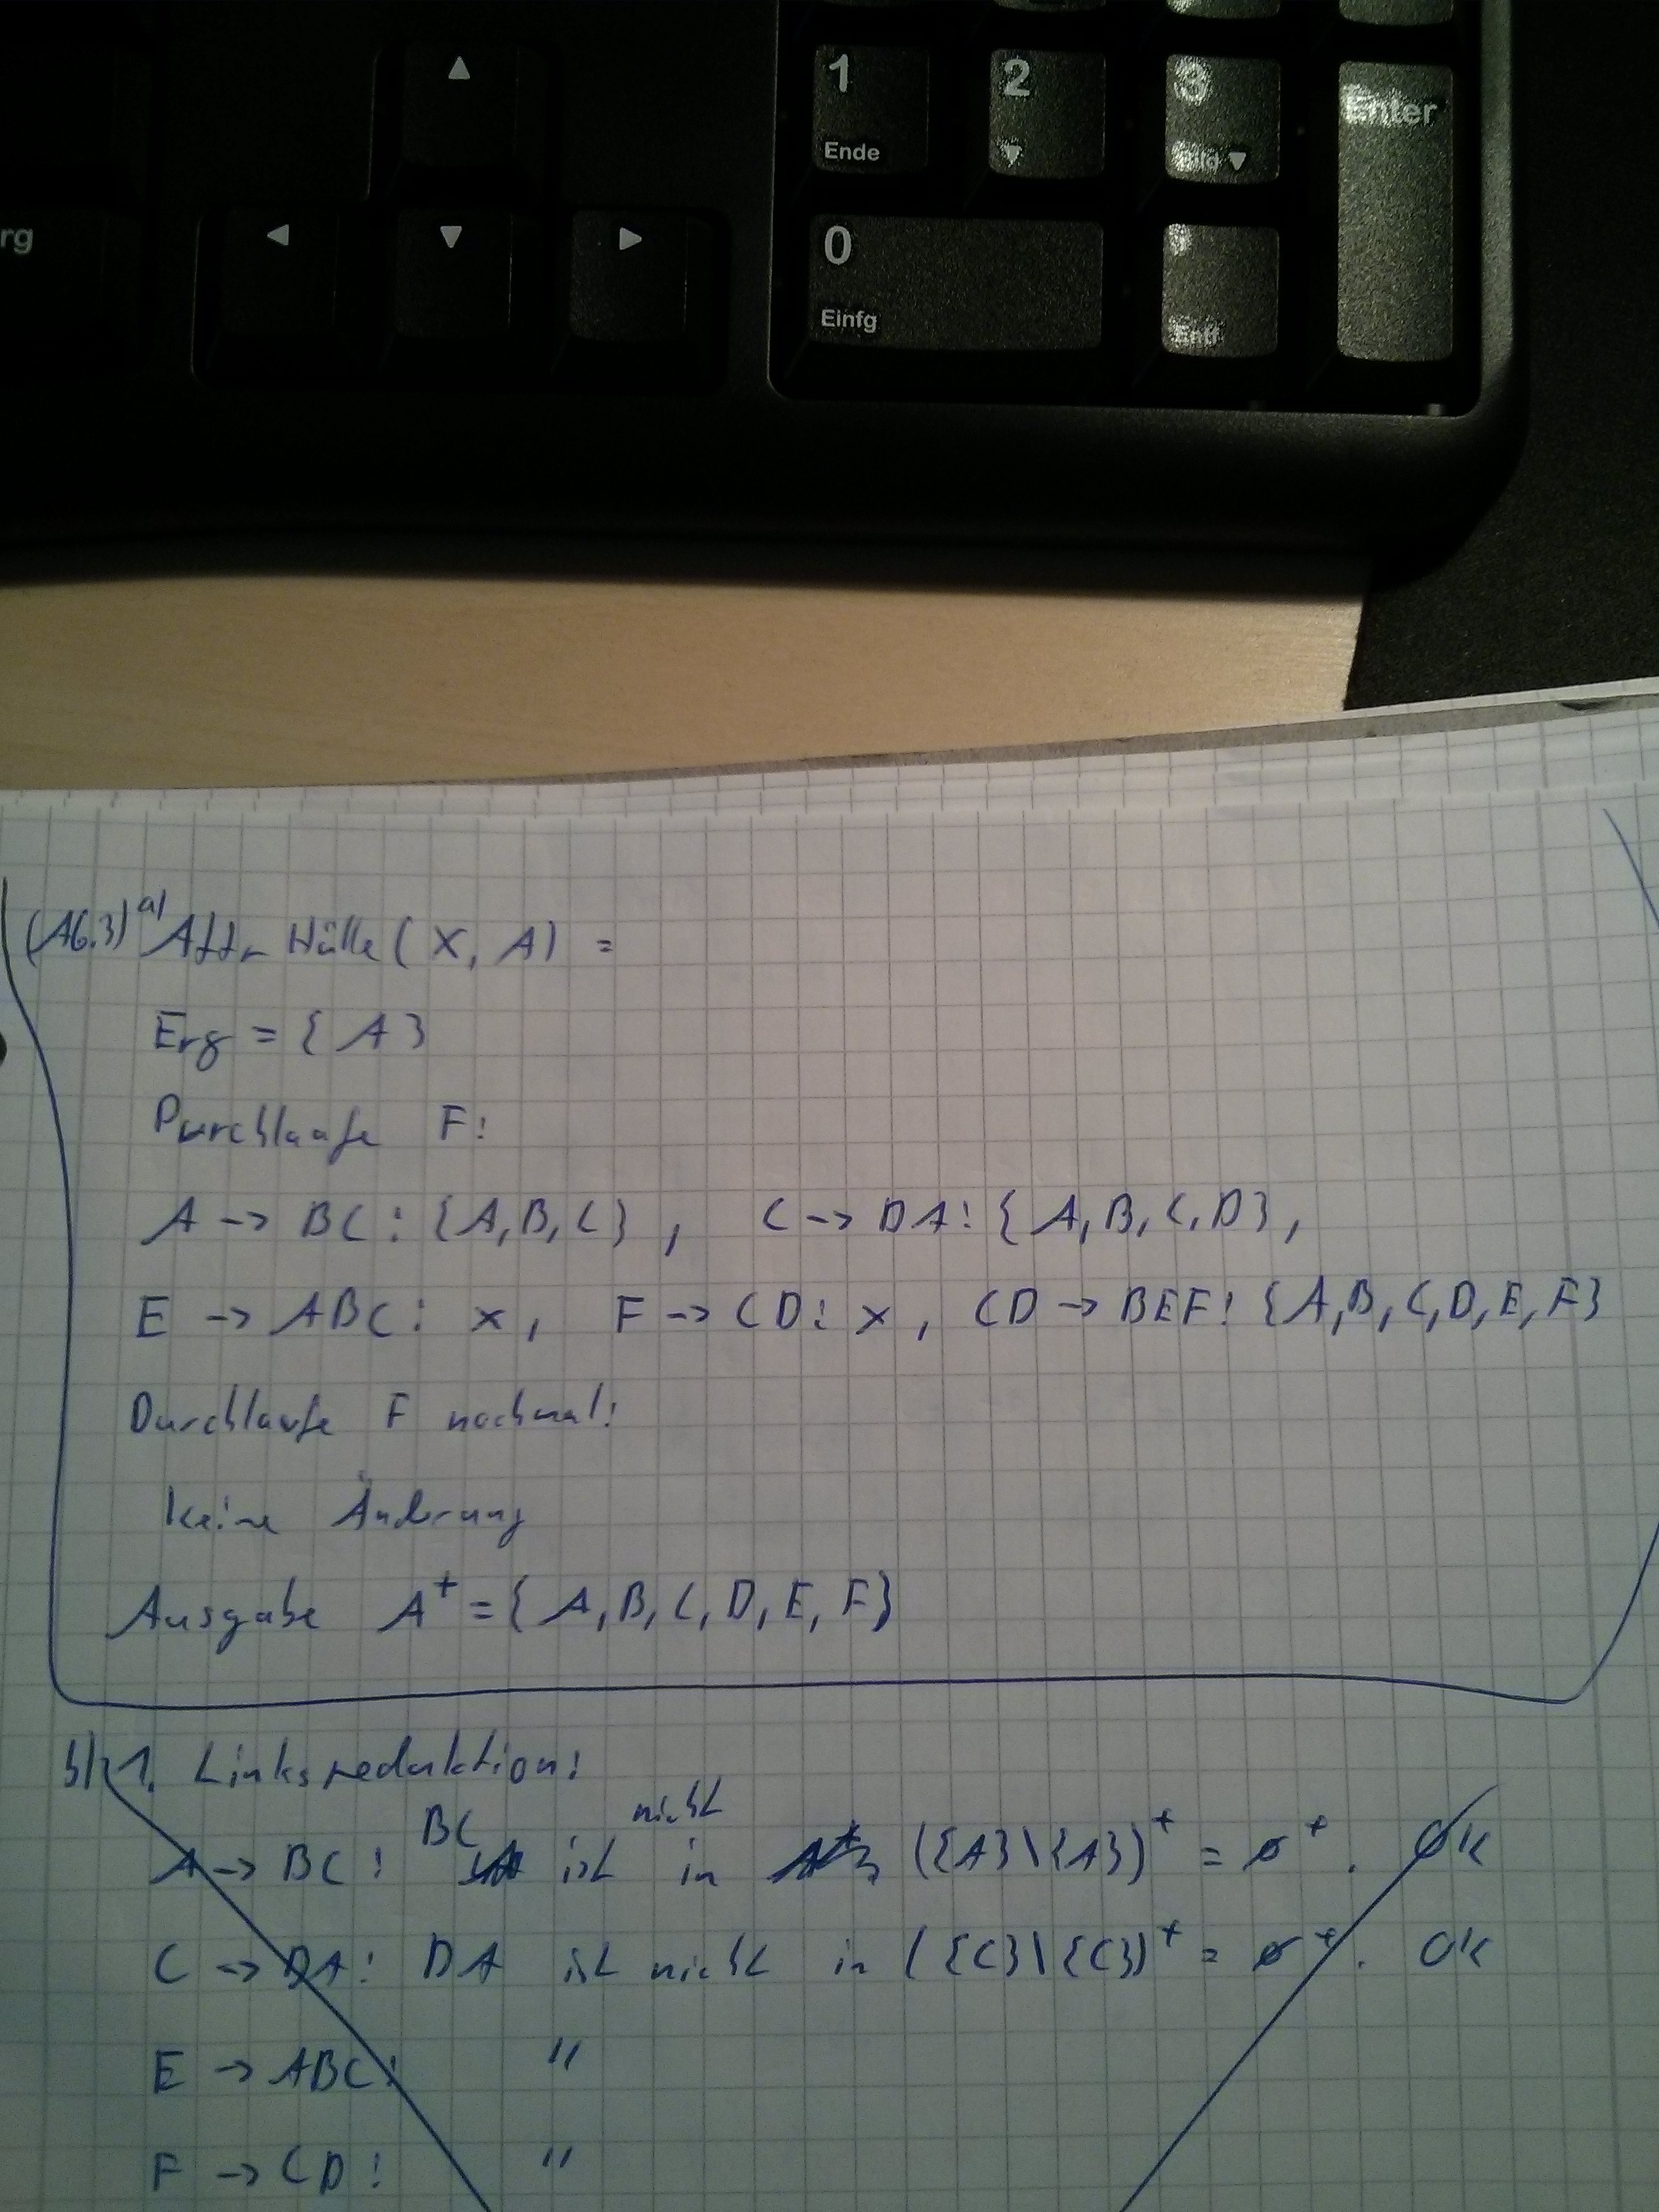 1 2 3 Enter
Ende Bild
rg 0
Einfg Entf
(A6.3) a) Attr Hülle ( X, A ) =
Erg = { A }
Durchlaufe F:
A -> BC: {A, B, C} , C -> DA: { A, B, C, D},
E -> ABC: x, F -> CD: x, CD -> BEF: {A, B, C, D, E, F}
Durchlaufe F nochmal:
keine Änderung
Ausgabe A⁺ = { A, B, C, D, E, F}
b) 1. Linksreduktion:
A -> BC: BC ist nicht in ({A}\{A})⁺ = ø⁺. OK
C -> DA: DA ist nicht in ({C}\{C})⁺ = ø⁺. OK
E -> ABC: "
F -> CD: "